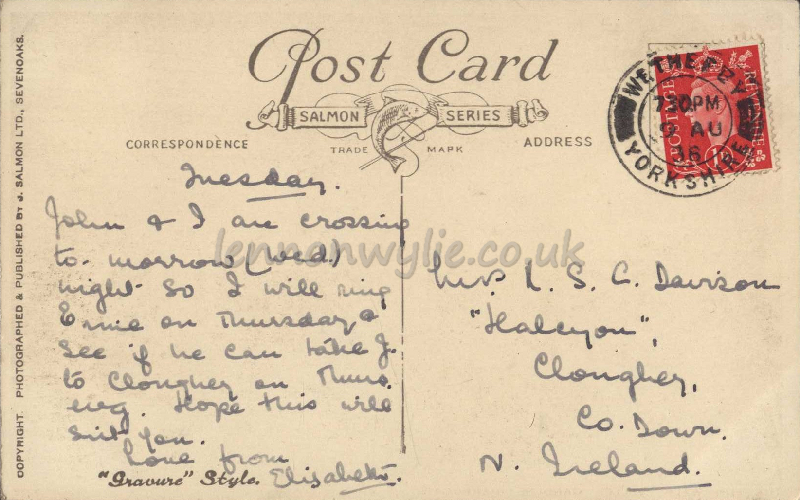 Post Card
SALMON SERIES
TRADE MARK
CORRESPONDENCE
ADDRESS
WETHERBY
7 30 PM
9 AU
YORKSHIRE
POSTAGE
REVENUE
Tuesday.
John & I are crossing
to-morrow (Wed.)
night so I will ring
Ernie on Thursday &
see if he can take J.
to Cloughey on Thurs.
evg. Hope this will
suit you.
Love from
Elisabeth.
Mrs. L. S. C. Davison
"Halcyon",
Cloughey,
Co. Down.
N. Ireland.
"Gravure" Style.
COPYRIGHT. PHOTOGRAPHED & PUBLISHED BY J. SALMON LTD., SEVENOAKS.
lennonwylie.co.uk